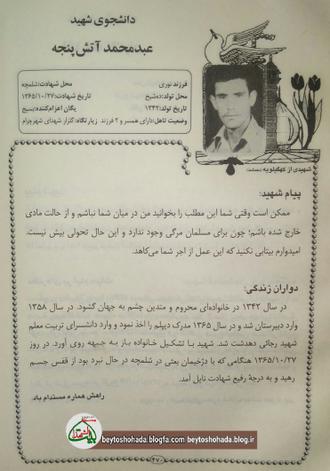 دانشجوی شهید
عبدمحمد آتش پنجه
فرزند:نوری
محل شهادت:شلمچه
محل تولد:ده‌شیخ
تاریخ شهادت:۱۳۶۵/۱۰/۲۷
تاریخ تولد:۱۳۴۲
یگان اعزام‌کننده:بسیج
وضعیت تاهل:دارای همسر و ۲ فرزند
زیارتگاه:گلزار شهدای شهرچرام
شهیدی از کهگیلویه
پیام شهید:
ممکن است وقتی شما این مطلب را بخوانید من در میان شما نباشم و از حالت مادی
خارج شده باشم؛ چون برای مسلمان مرگی وجود ندارد و این حال تحولی بیش نیست.
امیدوارم بیتابی نکنید که این عمل از اجر شما می‌کاهد.
دوران زندگی:
در سال ۱۳۴۲ در خانواده‌ای محروم و متدین چشم به جهان گشود. در سال ۱۳۵۸
وارد دبیرستان شد و در سال ۱۳۶۵ مدرک دیپلم را اخذ نمود و وارد دانشسرای تربیت معلم
شهید رجائی دهدشت شد. شهید با تشکیل خانواده باز به جبهه روی آورد. در روز
۱۳۶۵/۱۰/۲۷ هنگامی که با دژخیمان بعثی در شلمچه در حال نبرد بود از قفس جسم
رهید و به درجهٔ رفیع شهادت نایل آمد.
راهش هماره مستدام باد.
beytoshohada.blogfa.com beytoshohada.blog.ir